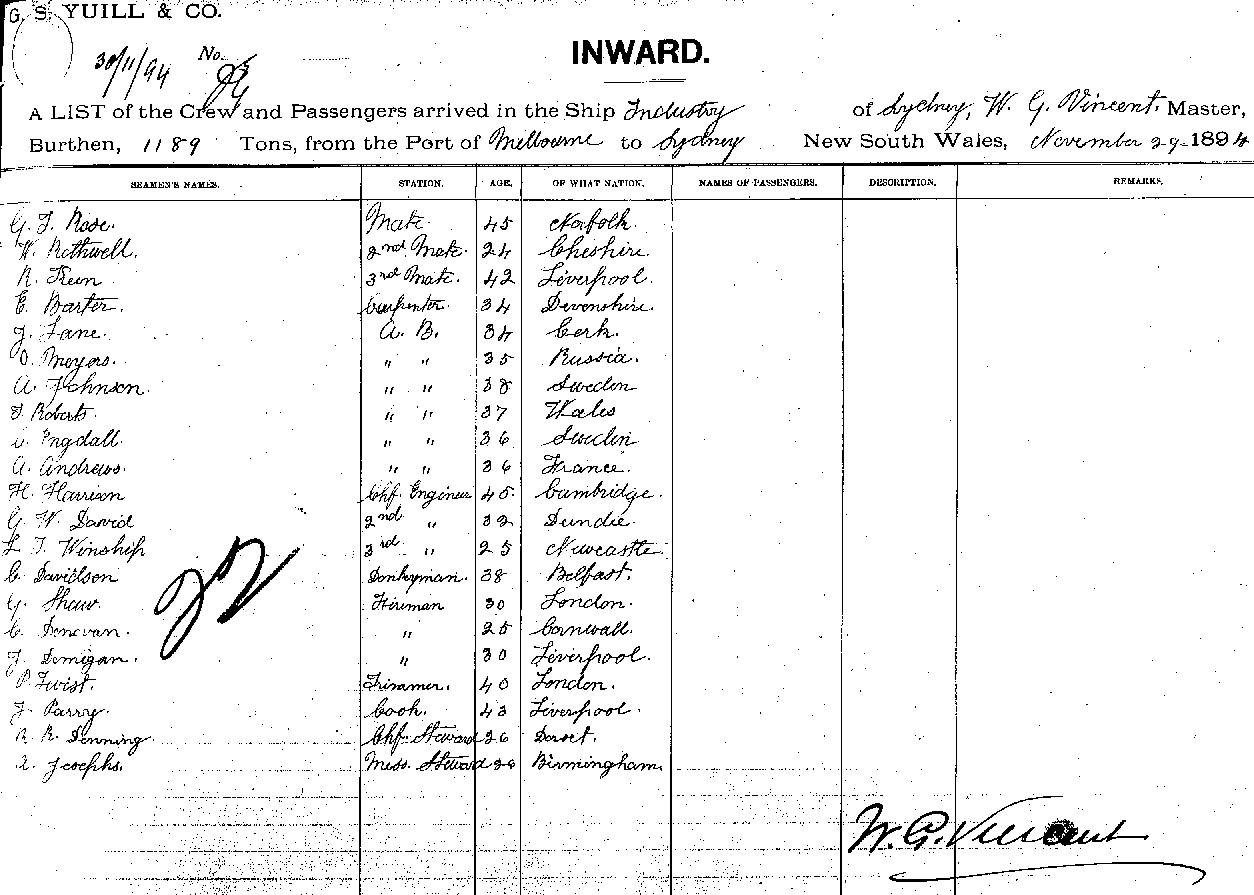 G. S. YUILL & CO.
30/11/94 No.
INWARD.
A LIST of the Crew and Passengers arrived in the Ship Industry of Sydney, W. G. Vincent. Master,
Burthen, 1189 Tons, from the Port of Melbourne to Sydney New South Wales, November 29 1894
SEAMEN'S NAMES. STATION. AGE. OF WHAT NATION. NAMES OF PASSENGERS. DESCRIPTION. REMARKS.
G. J. Rose. Mate 45 Norfolk
W. Rothwell. 2nd Mate. 24 Cheshire.
R. Keen 3rd Mate. 42 Liverpool.
E. Barter. Carpenter 34 Devonshire.
J. Lane. A. B. 34 Cork.
O. Meyers. " " 35 Russia.
A. Johnson. " " 38 Sweden
J. Roberts. " " 37 Wales
Engdall. " " 36 Sweden
A. Andrews. " " 36 France.
H. Harrison Chf. Engineer 45. Cambridge.
G. W. David 2nd " 32 Dundee.
L. T. Winship 3rd " 25 Newcastle.
C. Davidson Donkeyman. 38 Belfast.
G. Shaw. Fireman 30 London.
C. Donovan. " 25 Cornwall.
J. Demigan. " 30 Liverpool.
P. Twist. Trimmer. 40 London.
J. Parry. Cook. 43 Liverpool.
A. R. Denning. Chf. Steward 26 Dorset.
Josephs. Mess. Steward 26 Birmingham.
W. G. Vincent